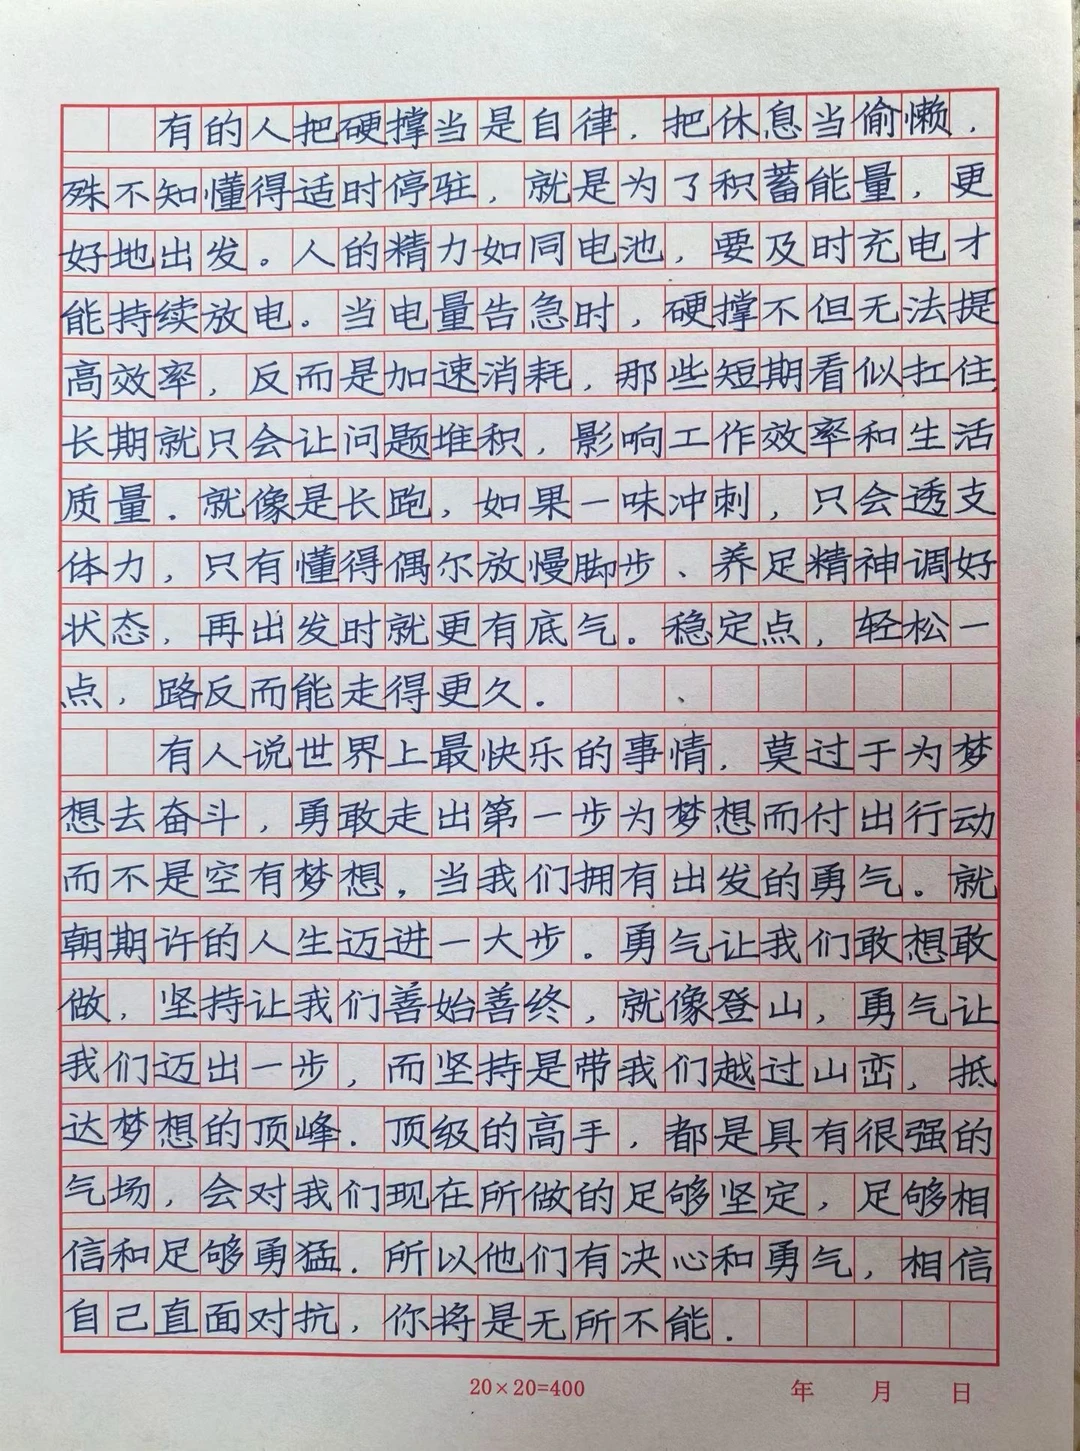 有的人把硬撑当是自律，把休息当偷懒，
殊不知懂得适时停驻，就是为了积蓄能量，更
好地出发。人的精力如同电池，要及时充电才
能持续放电。当电量告急时，硬撑不但无法提
高效率，反而是加速消耗，那些短期看似扛住，
长期就只会让问题堆积，影响工作效率和生活
质量．就像是长跑，如果一味冲刺，只会透支
体力，只有懂得偶尔放慢脚步、养足精神调好
状态，再出发时就更有底气。稳定点，轻松一
点，路反而能走得更久．
有人说世界上最快乐的事情，莫过于为梦
想去奋斗，勇敢走出第一步为梦想而付出行动
而不是空有梦想，当我们拥有出发的勇气。就
朝期许的人生迈进一大步。勇气让我们敢想敢
做，坚持让我们善始善终，就像登山，勇气让
我们迈出一步，而坚持是带我们越过山峦，抵
达梦想的顶峰．顶级的高手，都是具有很强的
气场，会对我们现在所做的足够坚定，足够相
信和足够勇猛．所以他们有决心和勇气，相信
自己直面对抗，你将是无所不能．
20×20=400 年 月 日